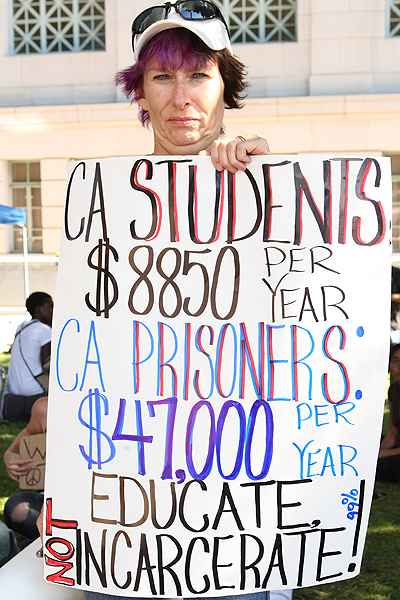 CA STUDENTS
$8850 PER YEAR
CA PRISONERS:
$47,000 PER YEAR
EDUCATE,
NOT INCARCERATE!
99%
W